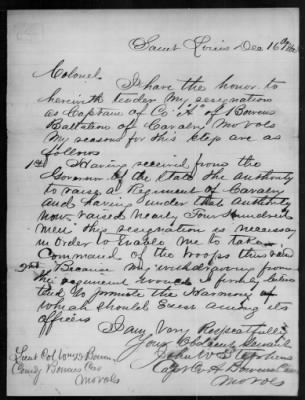 Saint Louis Dec 16th
Colonel
I have the honor to
herewith tender my resignation
as Captain of Co "A" of Bowens
Battalion of Cavalry Mo Vols
My reasons for this Step are as
follows
1st Having received from the
Governor of the State the Authority
to raise a Regiment of Cavalry
and having under that Authority
now raised nearly Four Hundred
men this resignation is necessary
in order to Enable me to take
Command of the troops thus raised
2nd Because my withdrawing from
the regiment would I firmly believe
tend to promote the Harmony
which should Exist among its
officers
I am, Very Respectfully
Your Obedient Servant
John W Stephens
Capt Co A Bowens
Mo Vols
Lieut Col Wm D Bowen
Comdg Bowens
Mo Vols